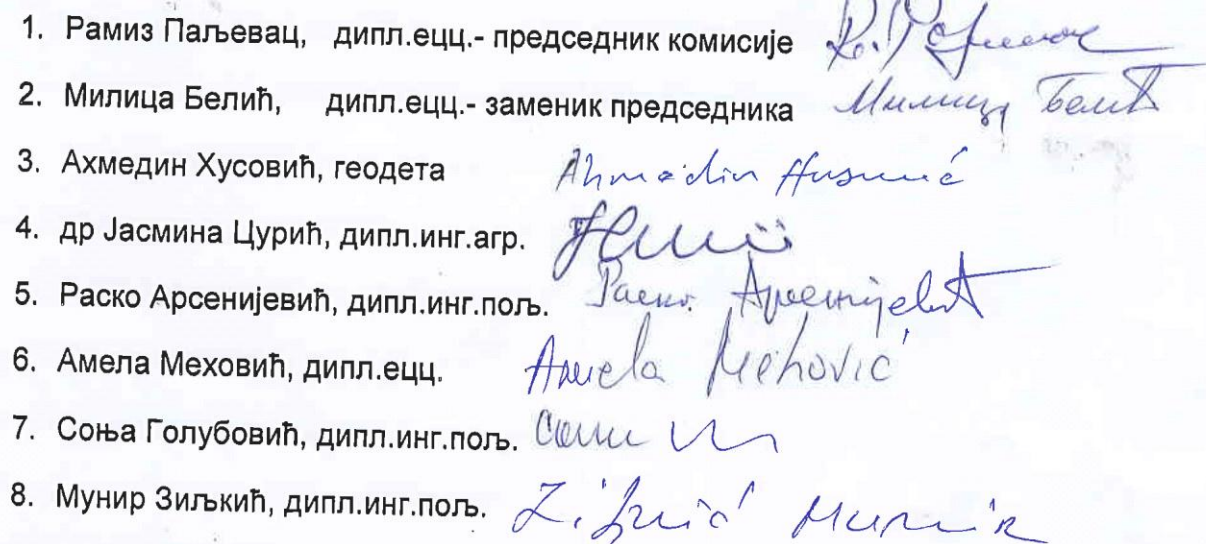 1. Рамиз Паљевац, дипл.ецц.- председник комисије
2. Милица Белић, дипл.ецц.- заменик председника Милица Белић
3. Ахмедин Хусовић, геодета Ahmedin
4. др Јасмина Цурић, дипл.инг.агр.
5. Раско Арсенијевић, дипл.инг.пољ. Раско Арсенијевић
6. Амела Меховић, дипл.ецц. Amela Mehović
7. Соња Голубовић, дипл.инг.пољ.
8. Мунир Зиљкић, дипл.инг.пољ.